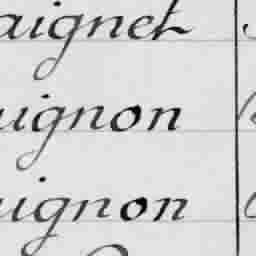 aignet
uignon
uignon